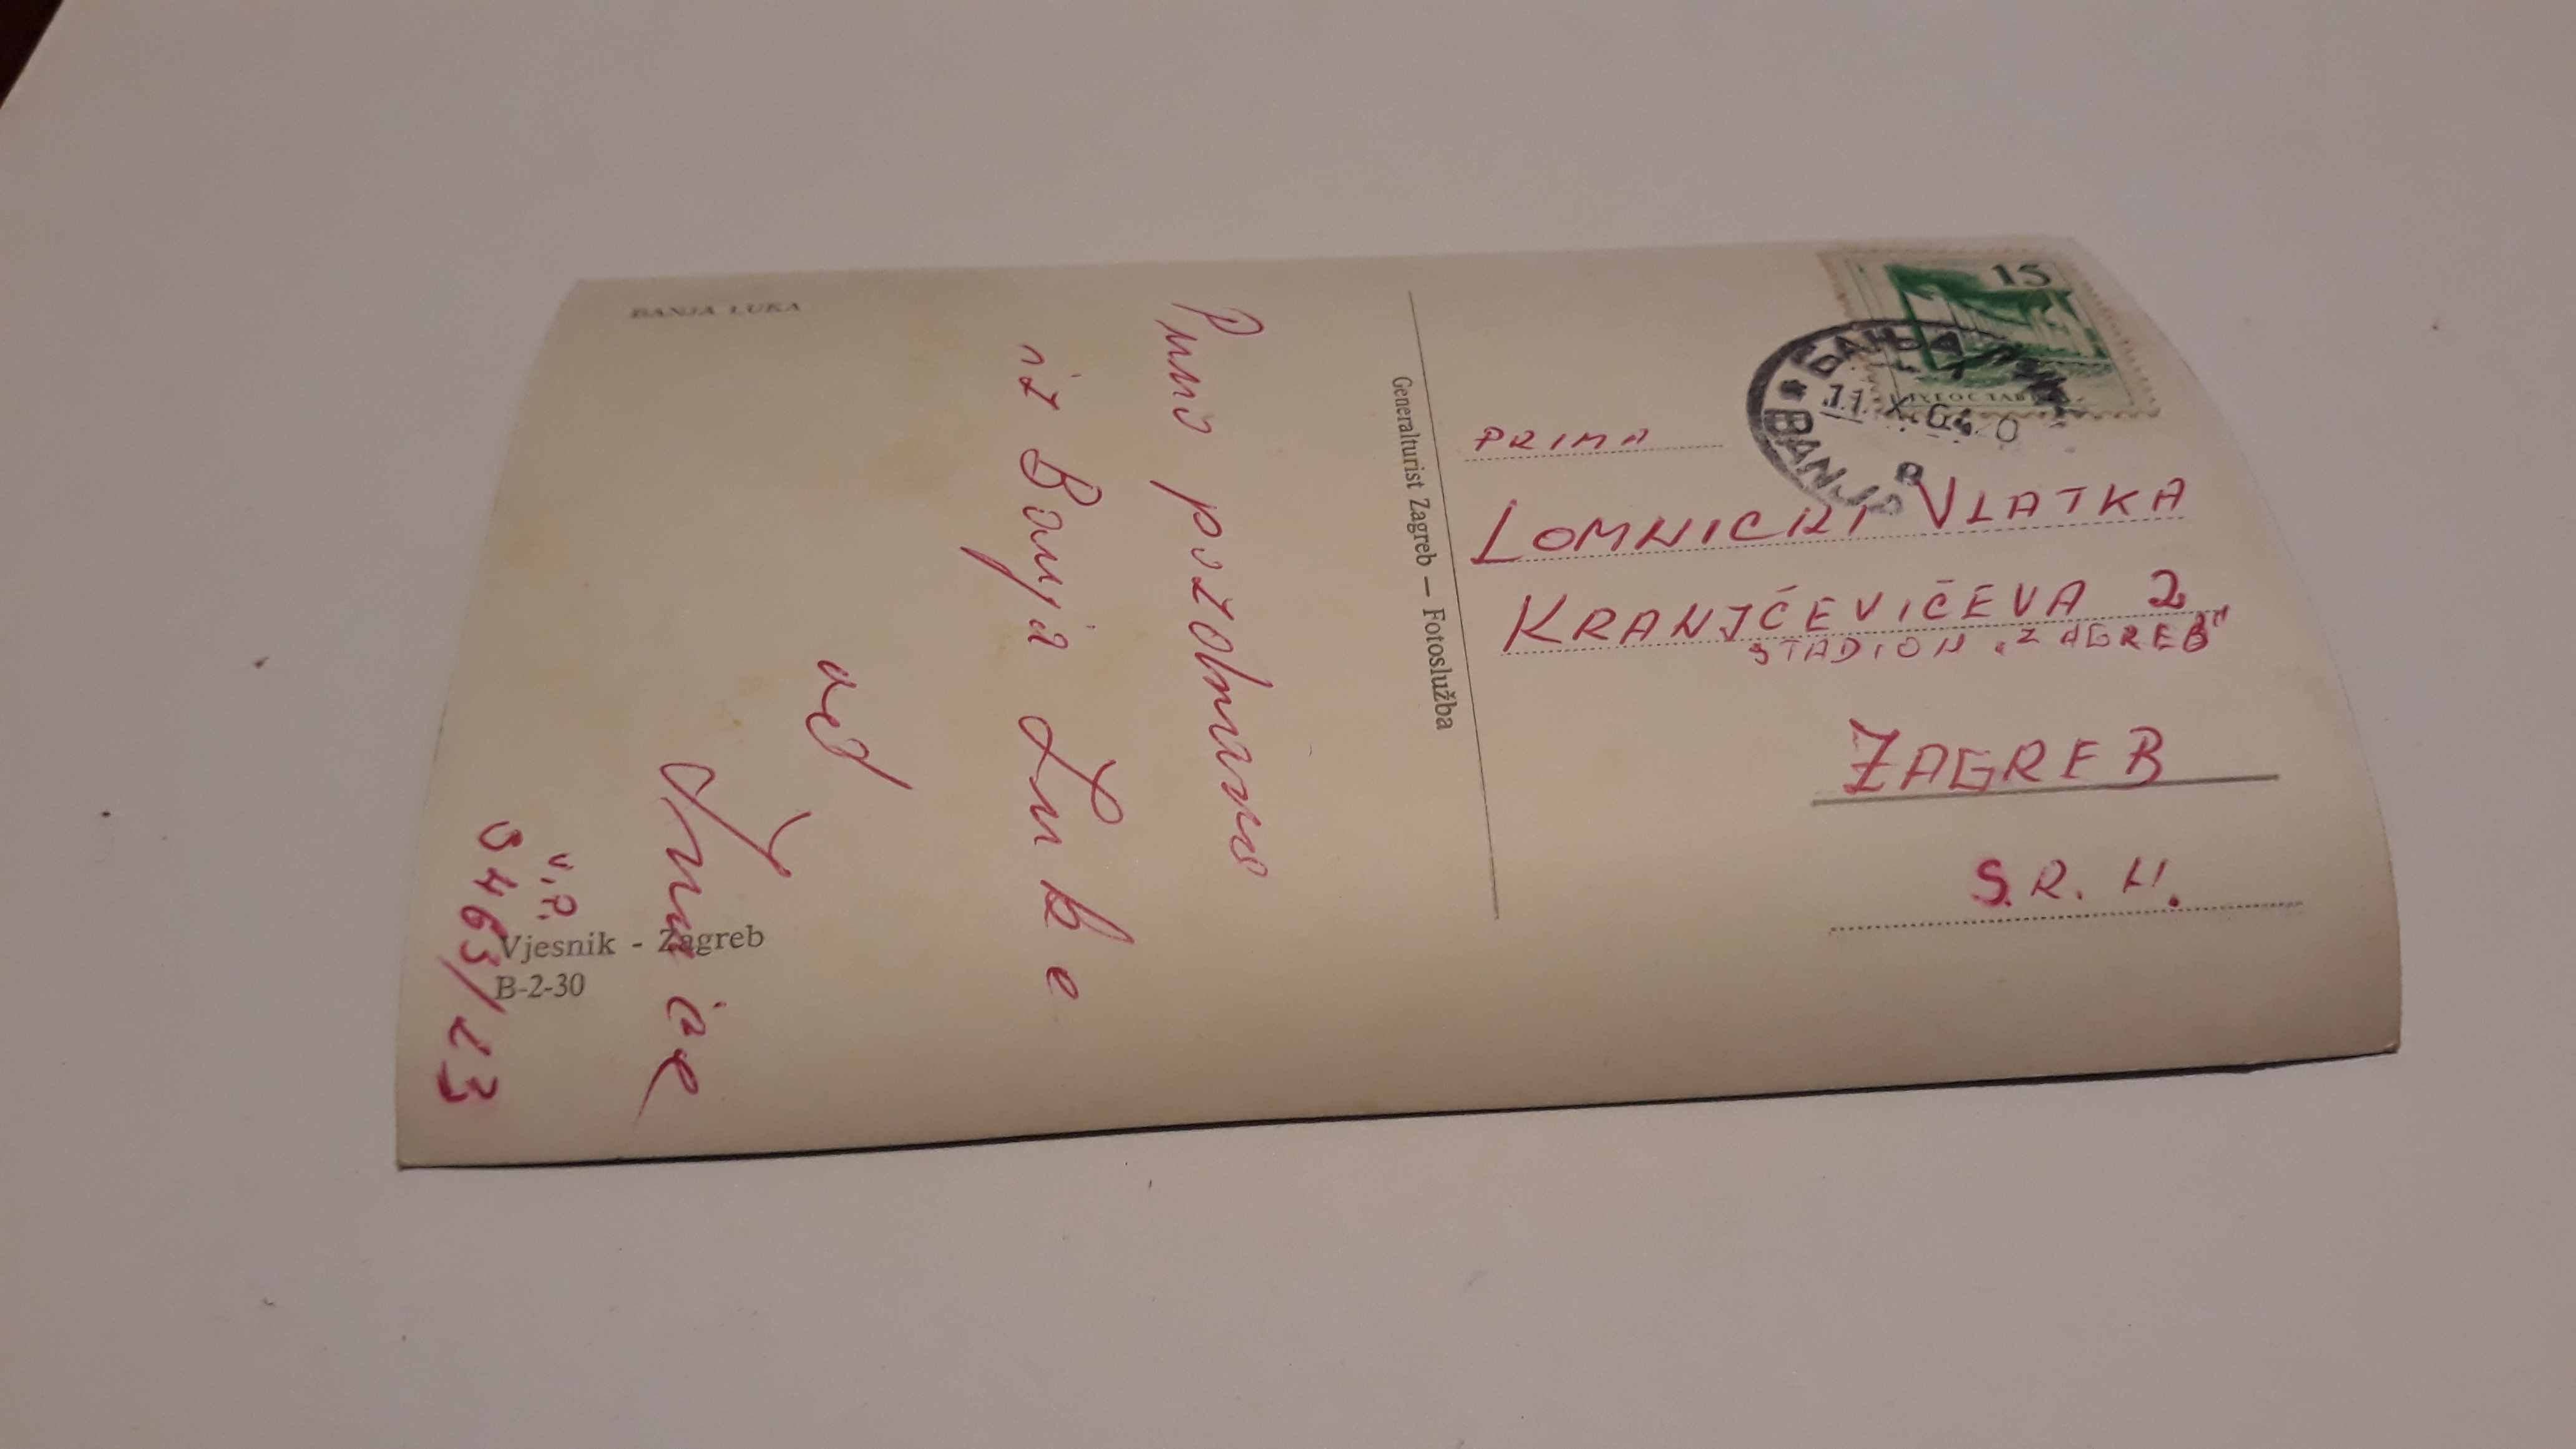 BANJA LUKA
Puno pozdrava
iz Banja Luke
od
V.P.
Vjesnik - Zagreb
B-2-30
Generalturist Zagreb — Fotoslužba
15
BANJA
11. X. 64
PRIMA
LOMNICKI VLATKA
KRANJČEVIČEVA 2
STADION „ZAGREB"
ZAGREB
S.R.H.